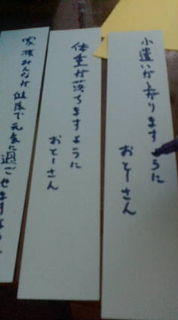 小遣いが上りますように
おとーさん
体重が落ちますように
おとーさん
家族みんなが健康で元気に過ごせますように